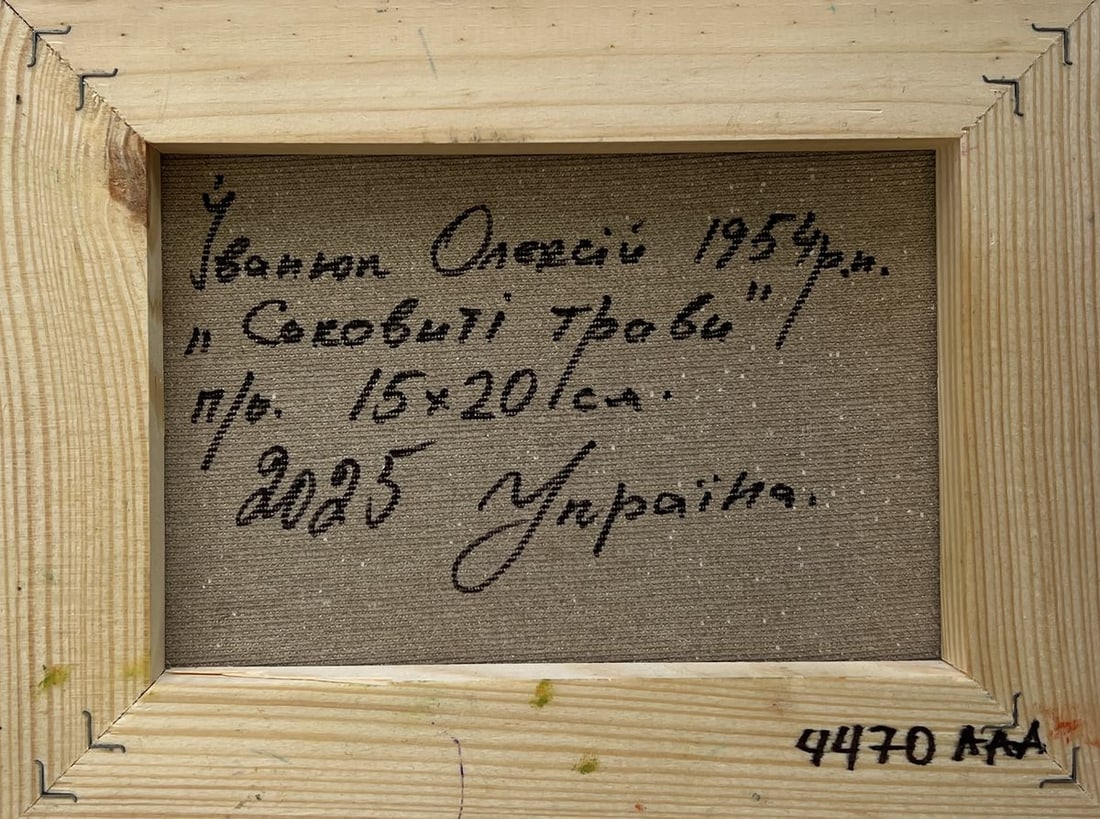 Іванюк Олексій 1954 р.н.
„Соковиті трави"
п/о. 15×20 см.
2025 Україна.
4470 AAA